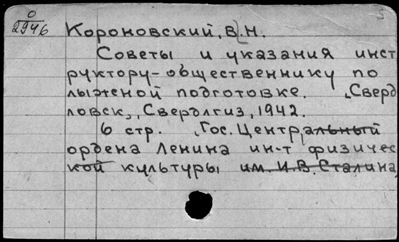 О
2946
Короновский, В.Н.
Советы и указания инст
руктору-общественнику по
лыжной подготовке. Сверд
ловск, Свердлгиз, 1942.
6 стр. Гос. Центральный
ордена Ленина ин-т физичес
кой культуры им. И.В. Сталина